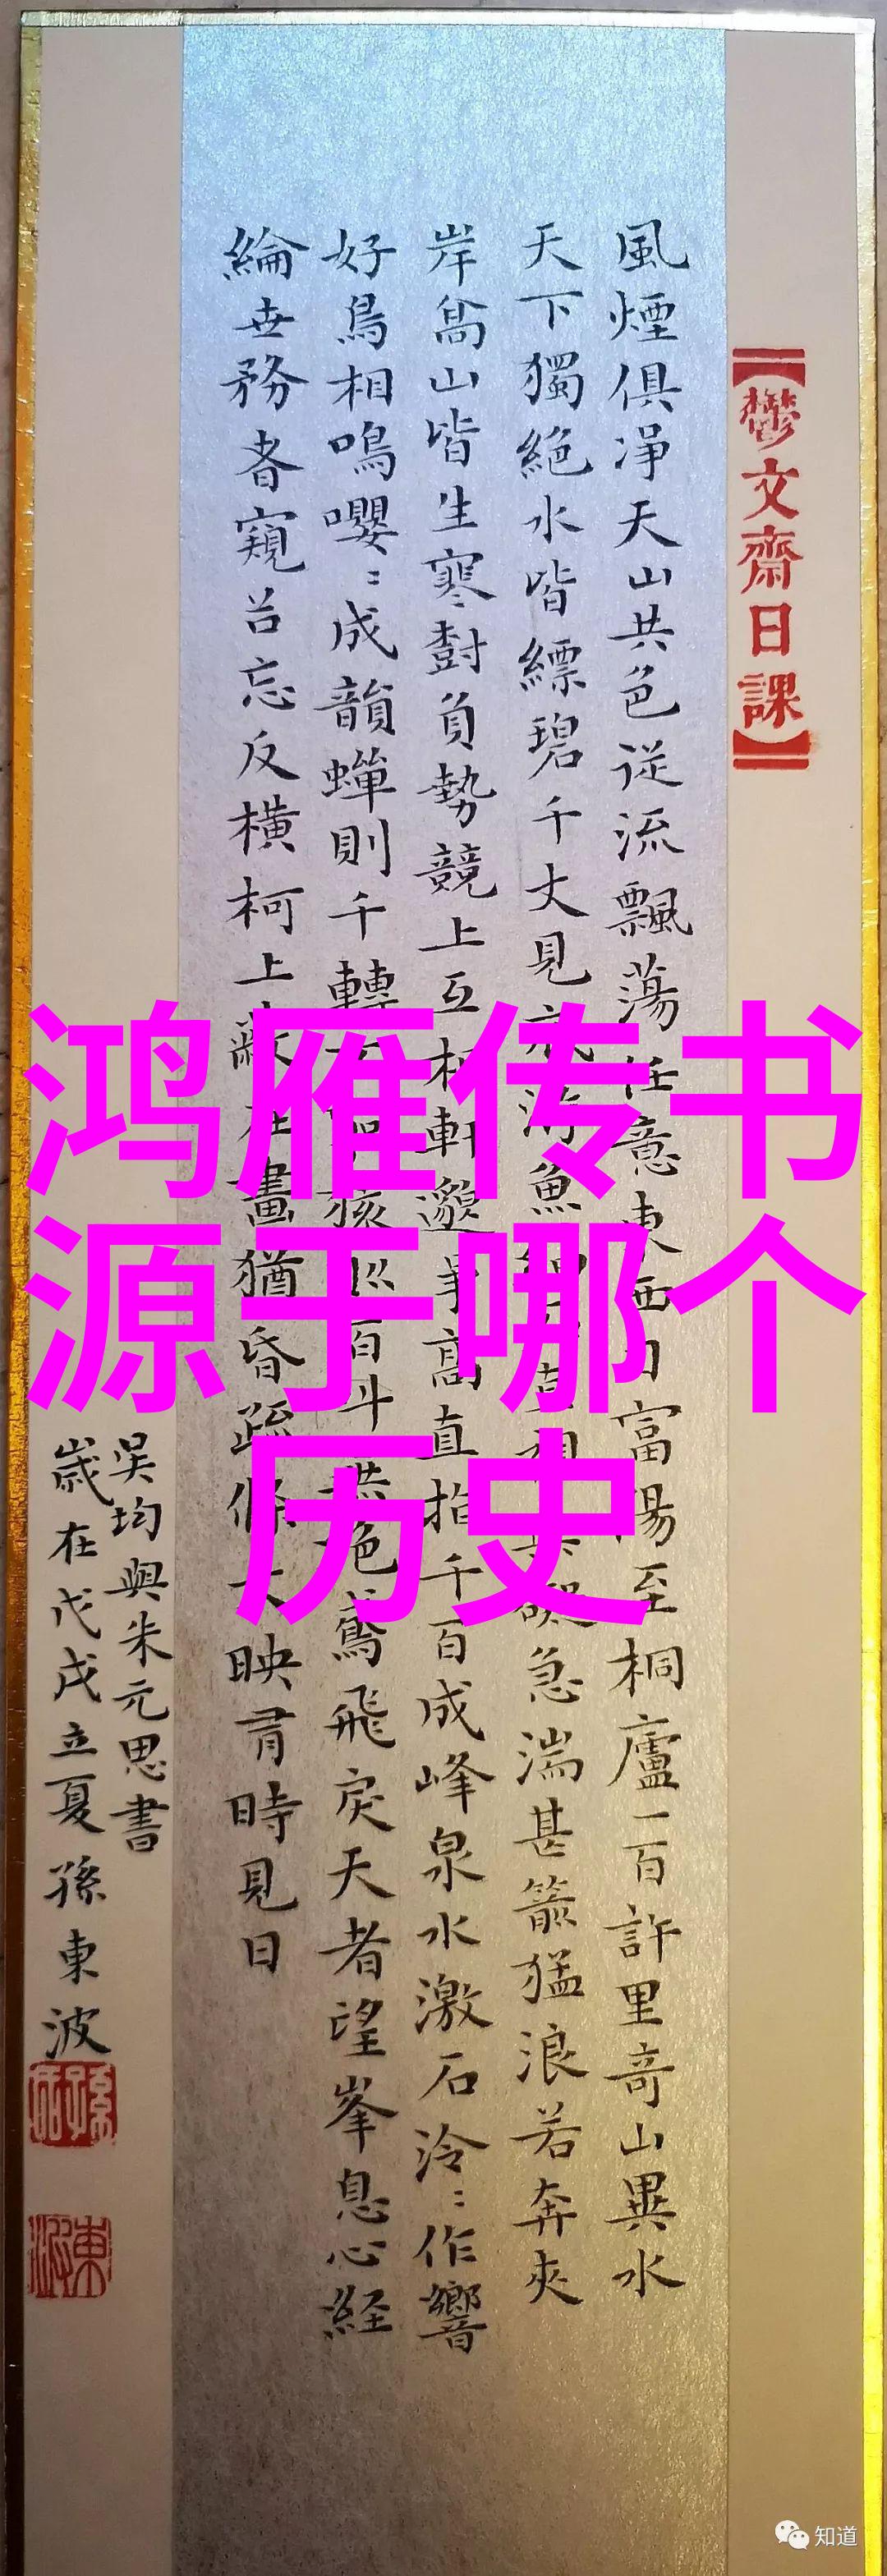 【鬱文齋日課】
風煙俱淨天山共色従流飄蕩任意東西自富陽至桐廬一百許里奇山異水
天下獨絶水皆縹碧千丈見底游魚細石直視無礙急湍甚箭猛浪若奔夾
岸髙山皆生寒樹負勢競上互相軒邈爭髙直指千百成峰泉水激石泠〻作響
好鳥相鳴嚶〻成韻蟬則千轉百斗甚絶鳶飛戾天者望峯息心経
綸世務者窺谷忘反橫柯上蔽在晝猶昏疏條交映有時見日
吳均與朱元思書
歲在戊戌立夏孫東波
鸿雁传书
源于哪个
历史
知道